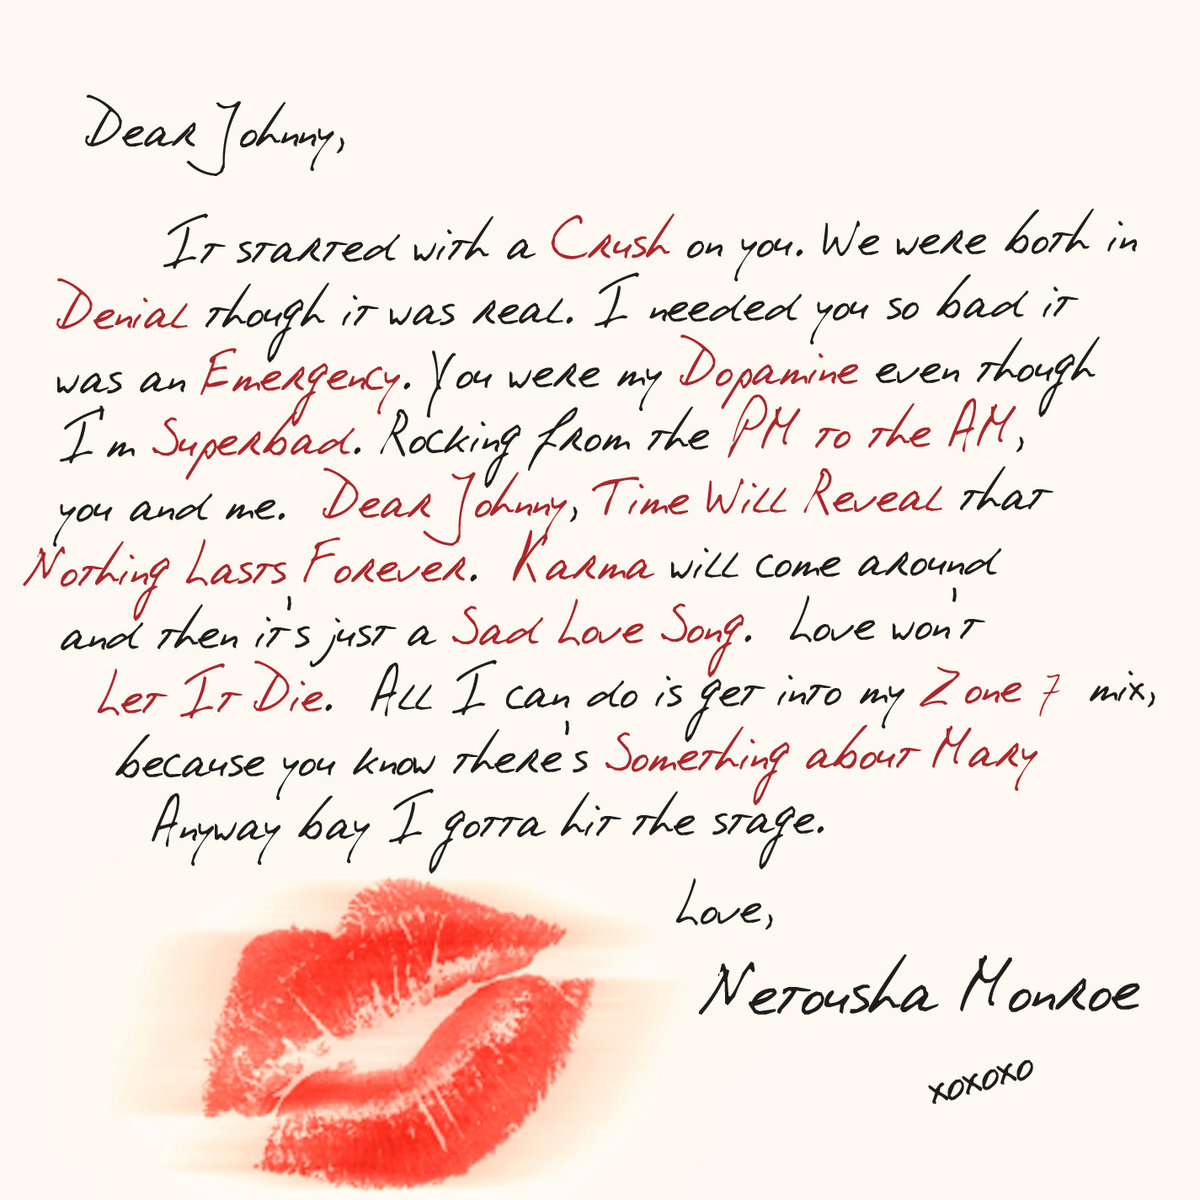 Dear Johnny,
It started with a Crush on you. We were both in
Denial though it was real. I needed you so bad it
was an Emergency. You were my Dopamine even though
I'm Superbad. Rocking from the PM to the AM,
you and me. Dear Johnny, Time Will Reveal that
Nothing Lasts Forever. Karma will come around
and then it's just a Sad Love Song. Love won't
Let It Die. All I can do is get into my Zone 7 mix,
because you know there's Something about Mary
Anyway bay I gotta hit the stage.
Love,
Netousha Monroe
xoxoxo